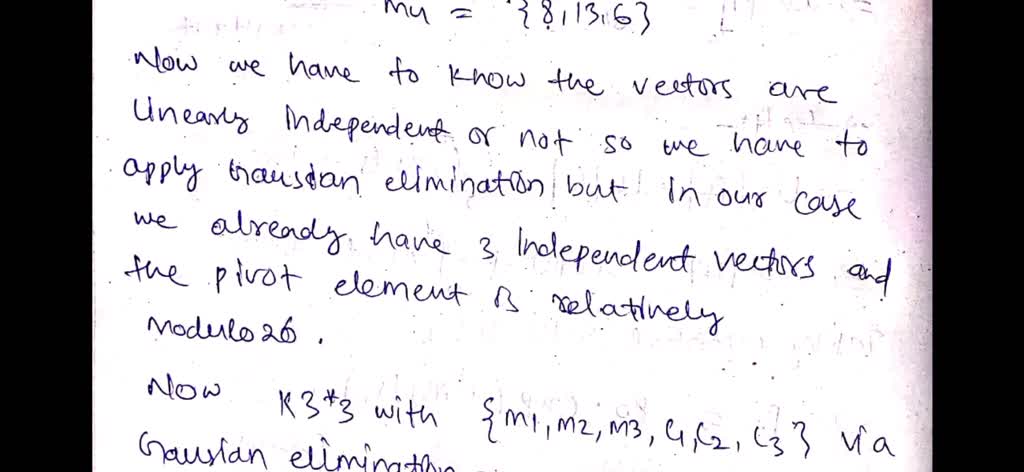 m4 = {8,13,6}
Now we have to know the vectors are
linearly independent or not so we have to
apply Gausian elimination but in our case
we already have 3 independent vectors and
the pivot element is relatively
modulo 26.
Now K3*3 with {m1, m2, m3, C1, C2, C3} via
Gausian elimination